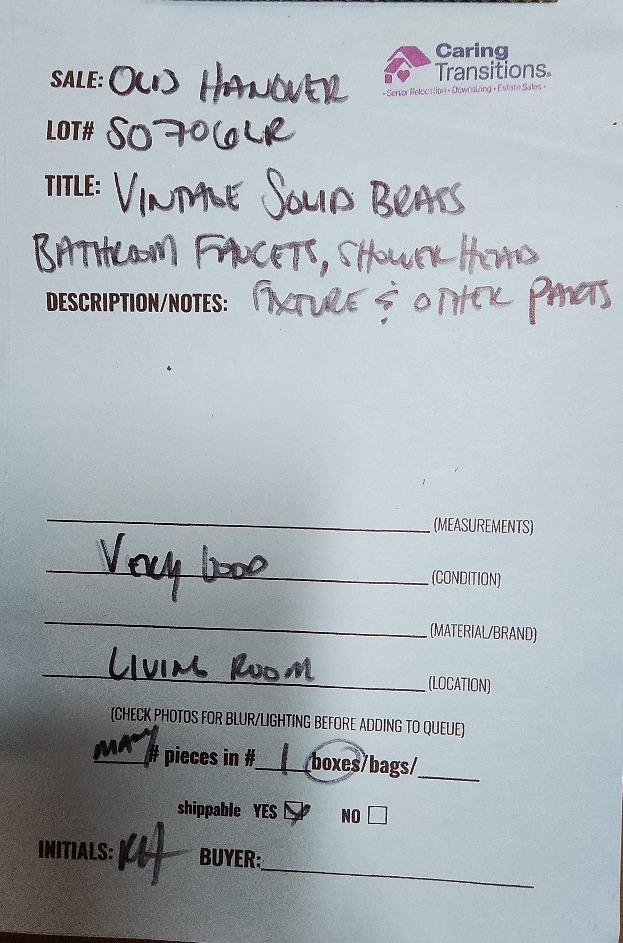 Caring
Transitions.
• Senior Relocation • Downsizing • Estate Sales •
SALE: OLD HANOVER
LOT# SO706LR
TITLE: VINTAGE SOLID BRASS
BATHROOM FAUCETS, SHOWER HEAD
DESCRIPTION/NOTES: FIXTURE & OTHER PARTS
(MEASUREMENTS)
VERY GOOD (CONDITION)
(MATERIAL/BRAND)
LIVING ROOM (LOCATION)
(CHECK PHOTOS FOR BLUR/LIGHTING BEFORE ADDING TO QUEUE)
MANY # pieces in # 1 boxes/bags/
shippable YES NO
INITIALS: KH BUYER: